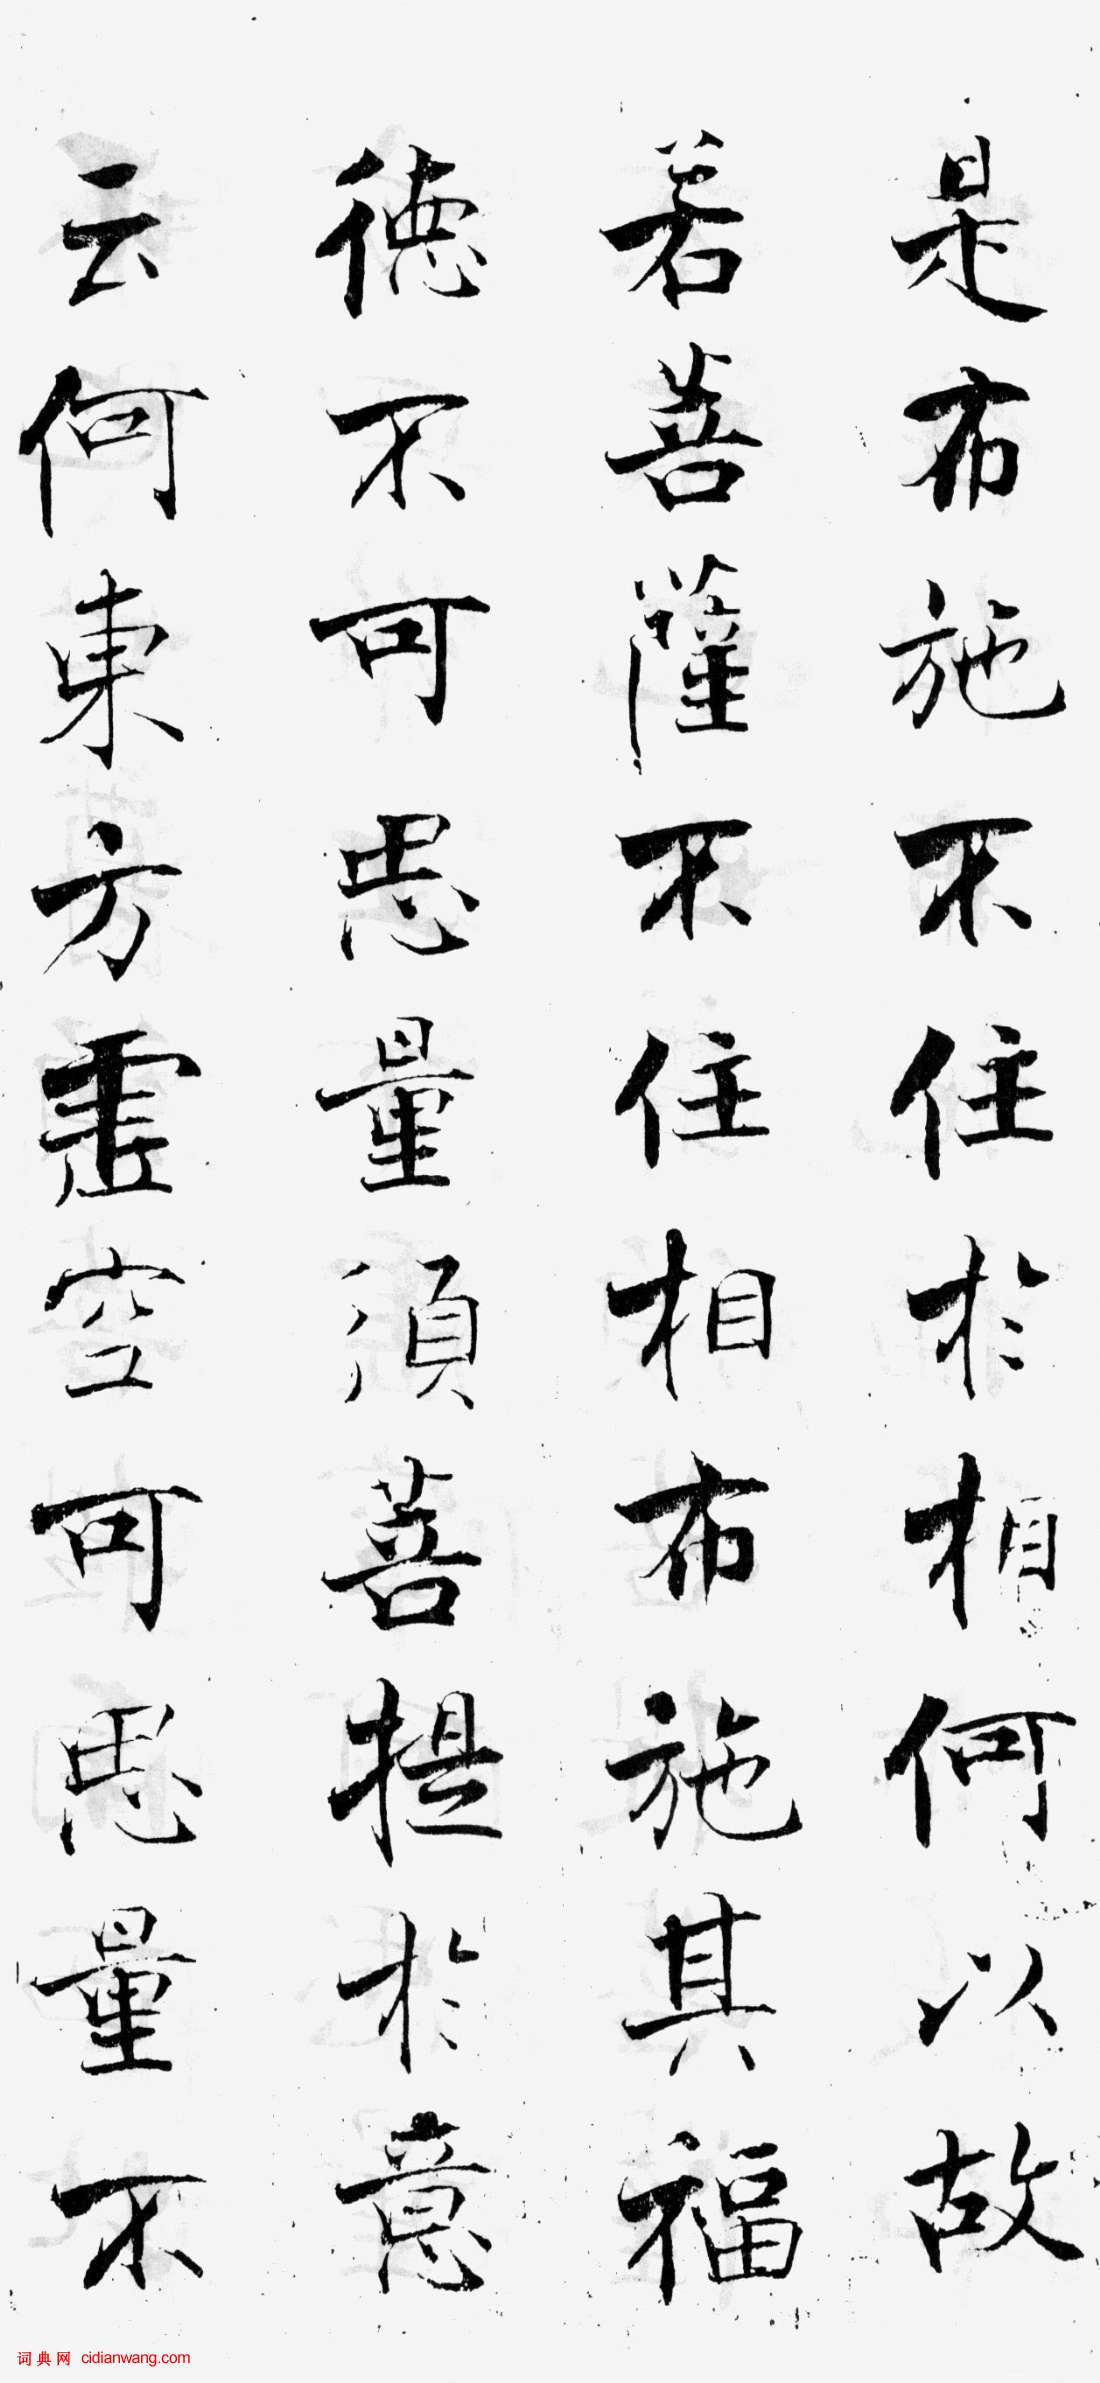 是布施不住於相何以故
若菩薩不住相布施其福
德不可思量須菩提於意
云何東方虛空可思量不
词典网 cidianwang.com